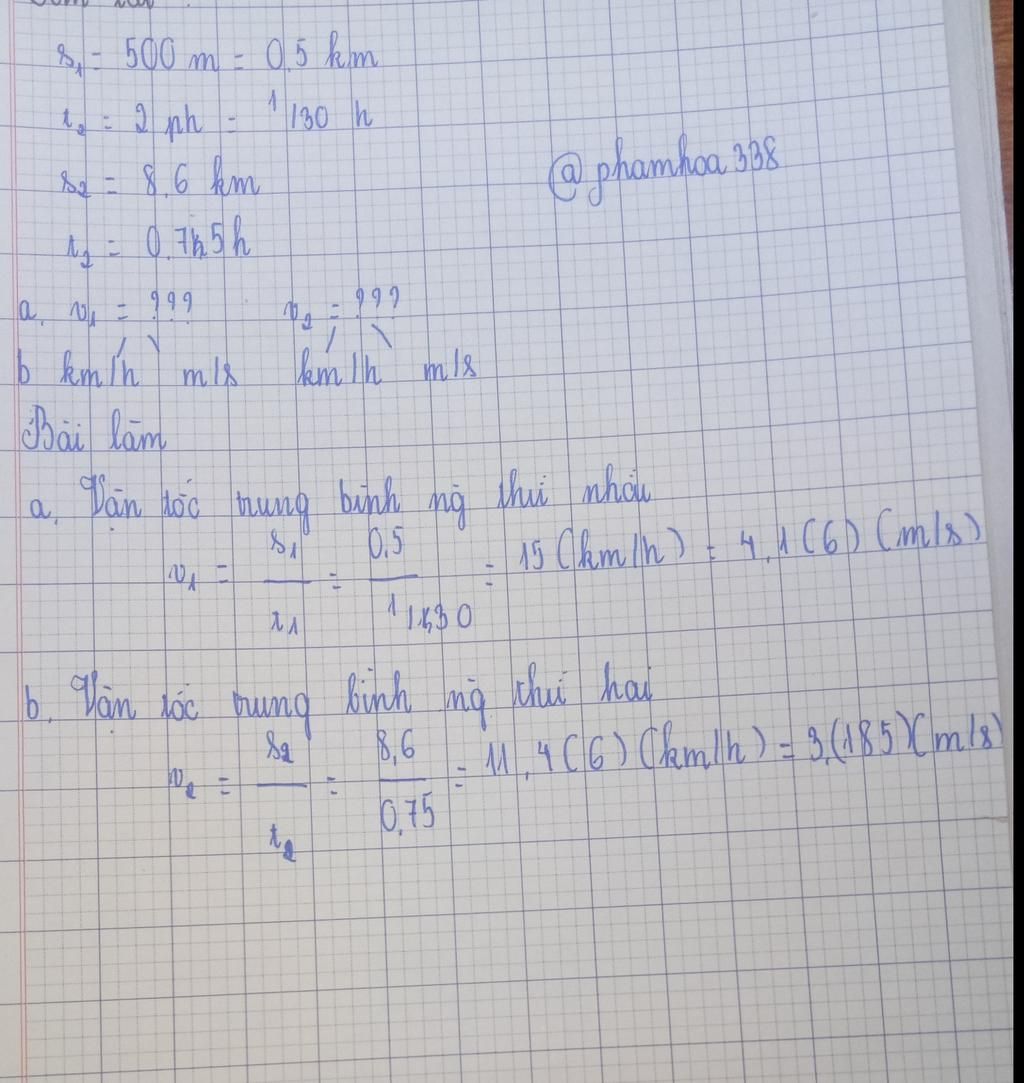 s₁ = 500 m = 0,5 km
t₂ = 2 ph = 1/30 h
@phamhoa338
s₂ = 8,6 km
t₂ = 0,75h
a. v₁ = ??? v₂ = ???
b km/h m/s km/h m/s
Bài làm
a. Vận tốc trung bình ng thứ nhất
v₁ = s₁/t₁ = 0,5/(1/30) = 15 (km/h) = 4,1(6) (m/s)
b. Vận tốc trung bình ng thứ hai
v₂ = s₂/t₂ = 8,6/0,75 = 11,4(6) (km/h) = 3,(185)(m/s)